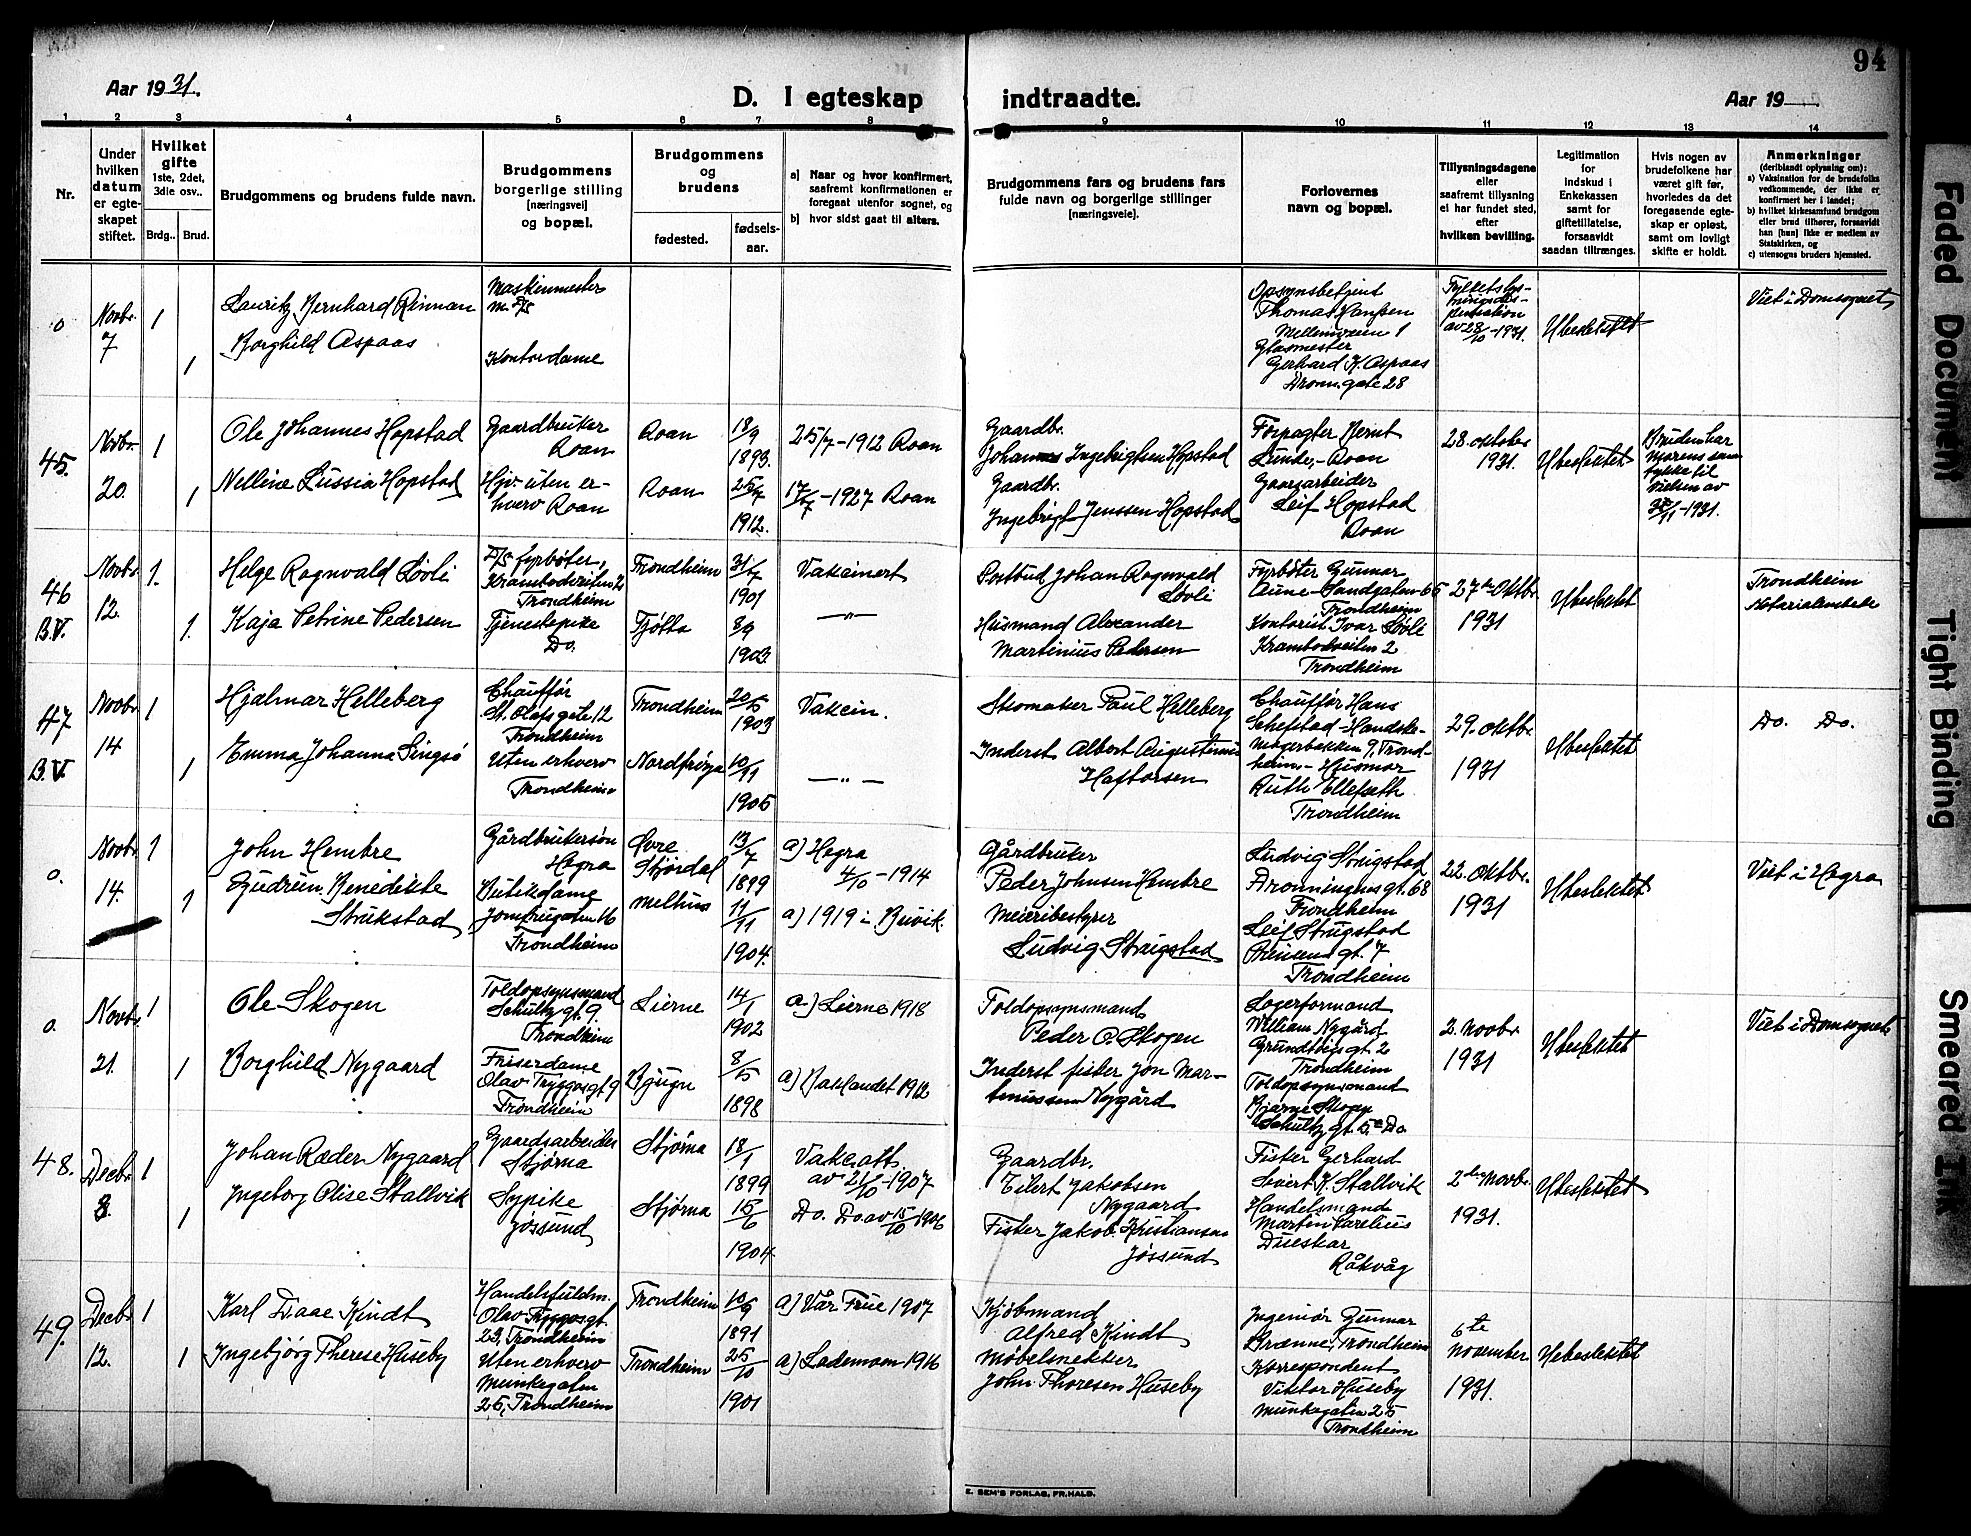 94
Aar 1931.
D. I egteskap
indtraadte.
Aar 19
1 2 3 4 5 6 7 8 9 10 11 12 13 14
Nr.
Under hvilken datum er egteskapet stiftet.
Hvilket gifte 1ste, 2det, 3die osv..
Brdg.. Brud.
Brudgommens og brudens fulde navn.
Brudgommens borgerlige stilling [næringsvei] og bopæl.
Brudgommens og brudens
fødested.
fødselsaar.
a) Naar og hvor konfirmert, saafremt konfirmationen er foregaat utenfor sognet, og
b) hvor sidst gaat til alters.
Brudgommens fars og brudens fars fulde navn og borgerlige stillinger [næringsveie].
Forlovernes navn og bopæl.
Tillysningsdagene eller saafremt tillysning ei har fundet sted, efter hvilken bevilling.
Legitimation for indskud i Enkekassen samt for giftetillatelse, forsaavidt saadan tiltrænges.
Hvis nogen av brudefolkene har været gift før, hvorledes da det foregaaende egteskap er opløst, samt om lovligt skifte er holdt.
Anmerkninger (deriblandt oplysning om):
a) Vaksination for de brudefolks vedkommende, der ikke er konfirmert her i landet;
b) hvilket kirkesamfund brudgom eller brud tilhører, forsaavidt han [hun] ikke er medlem av Statskirken, og
c) utensogns bruders hjemsted.
o
Novbr. 7
1
1
Lauritz Bernhard Rinnan
Borghild Aspaas
Maskinmester
Kontordame
Opsynsbetjent
Thomas Hansen
Mellemveien 1
Glasmester
Gerhard K. Aspaas
Dronn. gate 28
av 28/10-1931.
Ubeslektet
Viet i Domsognet
45.
Novbr. 20.
1
1
Ole Johannes Hopstad
Nelline Lussia Hopstad
Gaardbruker
Roan
Hjv. uten erhverv Roan
Roan
Roan
18/9 1893.
25/7 1912.
25/7-1912 Roan
17/7-1927 Roan
Gaardbr.
Johannes Ingebrigtsen Hopstad
Gaardbr.
Ingebrigt Jenssen Hopstad
Forpagter Bernt
Lunde,-Roan
Gaardsarbeider
Leif Hopstad
Roan
28. oktober 1931.
Ubeslektet
Bruden har
Morens samtykke til
vielsen av
-1931.
46 B.V.
Novbr. 12.
1.
1.
Helge Ragnvald Løvli
Kaja Petrine Pedersen
D/S fyrbøter,
Krambodveiten 2
Trondheim
Tjenestepike
Do.
Trondheim
Tjøtta
31/7 1901
8/9 1903.
Vakcinert
—"—
Postbud Johan Ragnvald
Løvli
Husmand Alexander
Martinius Pedersen
Fyrbøter Gunnar
Aune-Sandgaten 66
Trondheim
Kontorist Ivar Løvli
Krambodveiten 2
Trondheim
27de Oktbr. 1931
Ubeslektet
Trondheim
Notarialembede
47 B.V.
Novbr. 14
1
1
Hjalmar Helleberg
Emma Johanna Singsø
Chauffør
St. Olafs gate 12
Trondheim
Uten erhverv
Trondheim
Trondheim
Nordfrøya
20/5 1903
10/11 1905
Vakcin.
—"—
Skomaker Paul Helleberg
Inderst Albert Augustinius
Haftorsen
Chauffør Hans
Schefstad-Handskemagerbakken 9, Trondheim.- Husmor
Ruth Ellefseth
Trondheim
29. oktbr. 1931
Ubeslektet
Do. Do.
o.
Novbr. 14.
1
1
John Hembre
Gudrun Benedikte
Strukstad
Gårdbrukersøn
Hegra
Butikdame
Jomfrugaten 16
Trondheim
Øvre
Stjørdal
Melhus
13/7 1899
11/11 1904.
a) Hegra
4/10-1914
a) 1919 i Buvik.
Gårdbruker
Peder Johnsen Hembre
Meieribestyrer
Ludvig Strugstad
Ludvig Strugstad
Dronningensgt. 68
Trondheim
Leif Strugstad
Prinsens gt. 7
Trondheim
22. oktbr. 1931
Ubeslektet
Viet i Hegra
o.
Novbr. 21.
1
1
Ole Skogen
Borghild Nygaard
Toldopsynsmand
Schultz gt. 9.
Trondheim
Friserdame
Olav Tryggvasgt. 9
Trondheim
Lierne
Bjugn
14/1 1902
8/5 1898
a.) Lierne 1918
a.) Baklandet 1912
Toldopsynsmand
Peder O. Skogen
Inderst fisker Jon Martinussen Nygård
Lagerformand
William Nygård
Grundtvigs gt. 2
Trondheim
Toldopsynsmand
Bjarne Skogen
Schultz gt. 5a Do.
2. novbr. 1931
Ubeslektet
Viet i Domsognet
48.
Decbr. 3.
1
1
Johan Ræder Nygaard
Ingeborg Olise Stallvik
Gaardsarbeider
Stjørna
Sypike
Jøssund
Stjørna
Stjørna
18/1 1899
15/6 1904
Vakc. att.
av 21/10-1907
Do. Do av 15/10 1906
Gaardbr.
Eilert Jakobsen
Nygaard
Fisker Jakob Kristiansen
Jøssund
Fisker Gerhard
Sivert K. Stallvik
Handelsmand
Martin Carelius
Dueskar
Råkvåg
2den novbr. 1931.
Ubeslektet
49.
Decbr. 12.
1
1
Karl Daae Kindt
Ingebjørg Therese Huseby
Handelsfuldm.
Olav Tryggvasgt.
23, Trondheim
Uten erhverv
Munkegaten
25, Trondheim
Trondheim
Trondheim
10/9 1891
25/10 1901
a) Vår Frue 1907
a) Lademoen 1916
Kjøbmand
Alfred Kindt
Møbelsnekker
John Thoresen Huseby
Ingeniør Gunnar
Brænne, Trondheim
Korrespondent
Viktor Huseby
Munkegaten 25
Trondheim
6te november 1931.
Ubeslektet
E. SEM'S FORLAG, FR.HALD.
Faded Document
Tight Binding
Smeared Ink